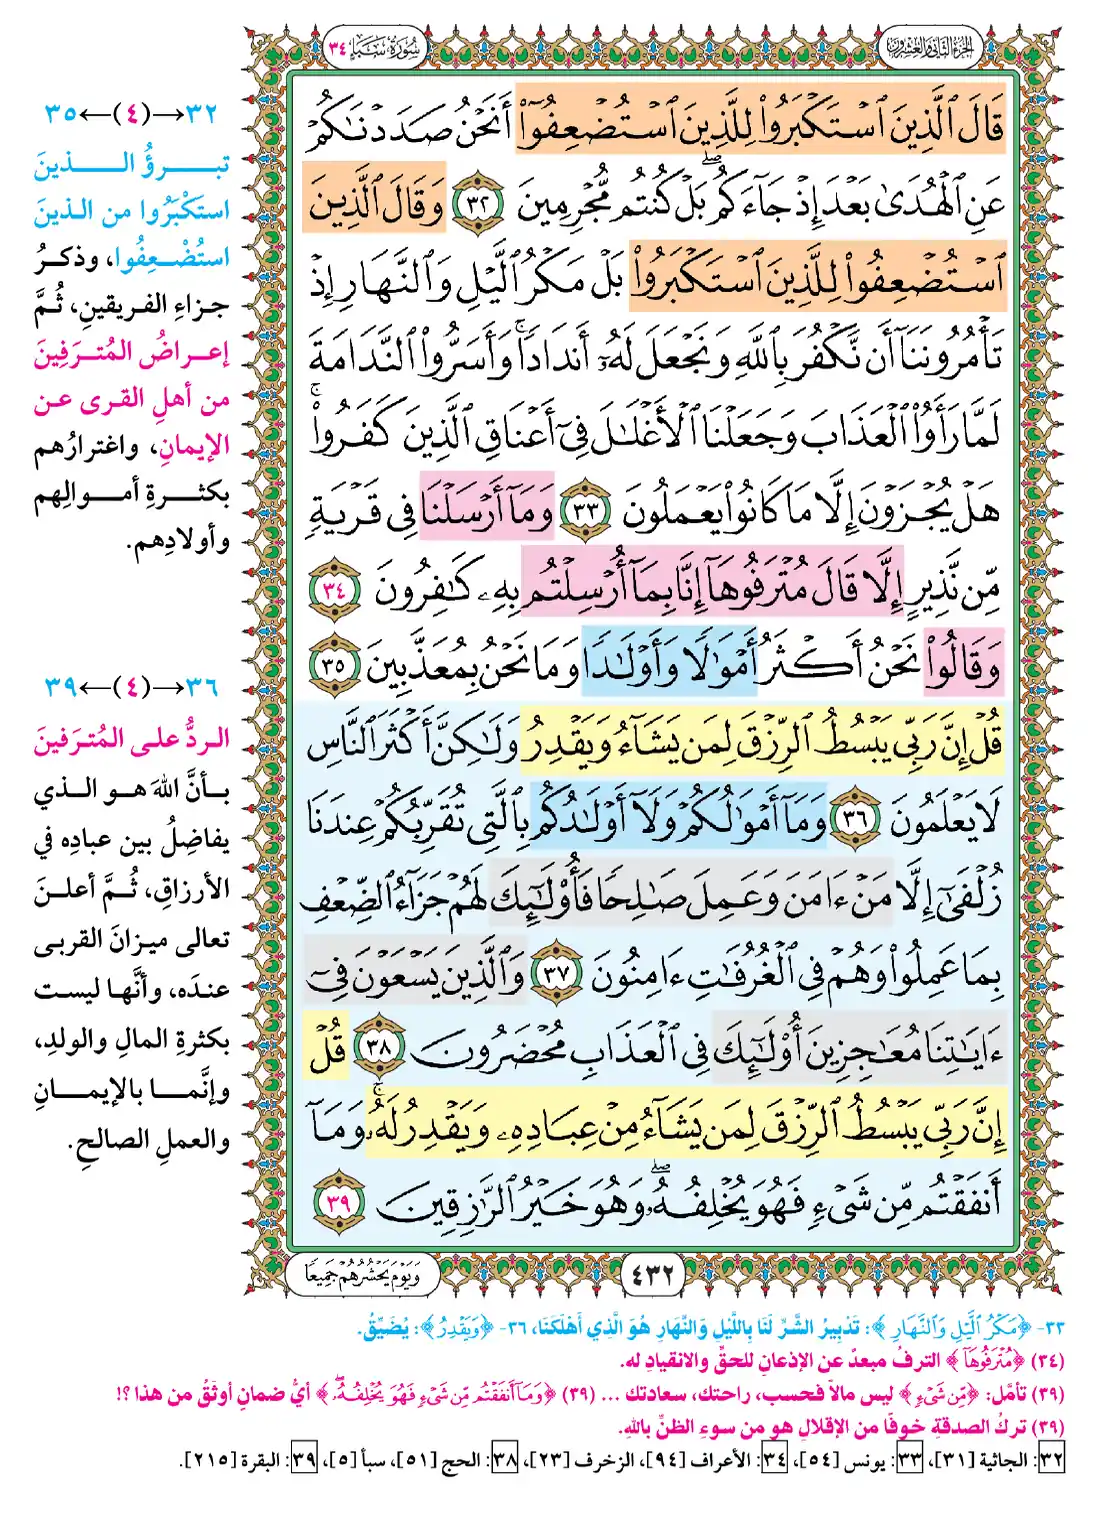 الجزء الثاني والعشرون
سُورَةُ سَبَإٍ ٣٤
قَالَ ٱلَّذِينَ ٱسۡتَكۡبَرُواْ لِلَّذِينَ ٱسۡتُضۡعِفُوٓاْ أَنَحۡنُ صَدَدۡنَٰكُمۡ
عَنِ ٱلۡهُدَىٰ بَعۡدَ إِذۡ جَآءَكُمۖ بَلۡ كُنتُم مُّجۡرِمِينَ ٣٢ وَقَالَ ٱلَّذِينَ
ٱسۡتُضۡعِفُواْ لِلَّذِينَ ٱسۡتَكۡبَرُواْ بَلۡ مَكۡرُ ٱلَّيۡلِ وَٱلنَّهَارِ إِذۡ
تَأۡمُرُونَنَآ أَن نَّكۡفُرَ بِٱللَّهِ وَنَجۡعَلَ لَهُۥٓ أَندَادٗاۚ وَأَسَرُّواْ ٱلنَّدَامَةَ
لَمَّا رَأَوُاْ ٱلۡعَذَابَ وَجَعَلۡنَا ٱلۡأَغۡلَٰلَ فِيٓ أَعۡنَاقِ ٱلَّذِينَ كَفَرُواْۚ
هَلۡ يُجۡزَوۡنَ إِلَّا مَا كَانُواْ يَعۡمَلُونَ ٣٣ وَمَآ أَرۡسَلۡنَا فِي قَرۡيَةٖ
مِّن نَّذِيرٍ إِلَّا قَالَ مُتۡرَفُوهَآ إِنَّا بِمَآ أُرۡسِلۡتُم بِهِۦ كَٰفِرُونَ ٣٤
وَقَالُواْ نَحۡنُ أَكۡثَرُ أَمۡوَٰلٗا وَأَوۡلَٰدٗا وَمَا نَحۡنُ بِمُعَذَّبِينَ ٣٥
قُلۡ إِنَّ رَبِّي يَبۡسُطُ ٱلرِّزۡقَ لِمَن يَشَآءُ وَيَقۡدِرُ وَلَٰكِنَّ أَكۡثَرَ ٱلنَّاسِ
لَا يَعۡلَمُونَ ٣٦ وَمَآ أَمۡوَٰلُكُمۡ وَلَآ أَوۡلَٰدُكُم بِٱلَّتِي تُقَرِّبُكُمۡ عِندَنَا
زُلۡفَىٰٓ إِلَّا مَنۡ ءَامَنَ وَعَمِلَ صَٰلِحٗا فَأُوْلَٰٓئِكَ لَهُمۡ جَزَآءُ ٱلضِّعۡفِ
بِمَا عَمِلُواْ وَهُمۡ فِي ٱلۡغُرُفَٰتِ ءَامِنُونَ ٣٧ وَٱلَّذِينَ يَسۡعَوۡنَ فِيٓ
ءَايَٰتِنَا مُعَٰجِزِينَ أُوْلَٰٓئِكَ فِي ٱلۡعَذَابِ مُحۡضَرُونَ ٣٨ قُلۡ
إِنَّ رَبِّي يَبۡسُطُ ٱلرِّزۡقَ لِمَن يَشَآءُ مِنۡ عِبَادِهِۦ وَيَقۡدِرُ لَهُۥۚ وَمَآ
أَنفَقۡتُم مِّن شَيۡءٖ فَهُوَ يُخۡلِفُهُۥۖ وَهُوَ خَيۡرُ ٱلرَّٰزِقِينَ ٣٩
٤٣٢
وَيَوۡمَ يَحۡشُرُهُمۡ جَمِيعٗا
٣٢→(٤)←٣٥
تبرؤُ الذينَ
استَكْبَرُوا من الذينَ
استُضْعِفُوا، وذكرُ
جزاءِ الفريقينِ، ثُمَّ
إعراضُ المُترَفِينَ
من أهلِ القرى عن
الإيمانِ، واغترارُهم
بكثرةِ أموالِهم
وأولادِهم.
٣٦→(٤)←٣٩
الردُّ على المُترَفينَ
بأنَّ اللهَ هو الذي
يفاضِلُ بين عبادِه في
الأرزاقِ، ثُمَّ أعلنَ
تعالى ميزانَ القربى
عندَه، وأنَّها ليست
بكثرةِ المالِ والولدِ،
وإنَّما بالإيمانِ
والعملِ الصالحِ.
٣٣- ﴿مَكۡرُ ٱلَّيۡلِ وَٱلنَّهَارِ﴾: تَدْبِيرُ الشَّرِّ لَنَا بِاللَّيْلِ وَالنَّهَارِ هُوَ الَّذِي أَهْلَكَنَا، ٣٦- ﴿وَيَقۡدِرُ﴾: يُضَيِّقُ.
(٣٤) ﴿مُتۡرَفُوهَآ﴾ الترفُ مبعدٌ عن الإذعانِ للحقِّ والانقيادِ له.
(٣٩) تأمَّل: ﴿مِّن شَيۡءٖ﴾ ليس مالًا فحسب، راحتك، سعادتك ... (٣٩) ﴿وَمَآ أَنفَقۡتُم مِّن شَيۡءٖ فَهُوَ يُخۡلِفُهُۥۖ﴾ أيُّ ضمانٍ أوثقُ من هذا ؟!
(٣٩) تركُ الصدقةِ خوفًا من الإقلالِ هو من سوءِ الظنِّ باللهِ.
٣٢: الجاثية [٣١]، ٣٣: يونس [٥٤]، ٣٤: الأعراف [٩٤]، الزخرف [٢٣]، ٣٨: الحج [٥١]، سبأ [٥]، ٣٩: البقرة [٢١٥].